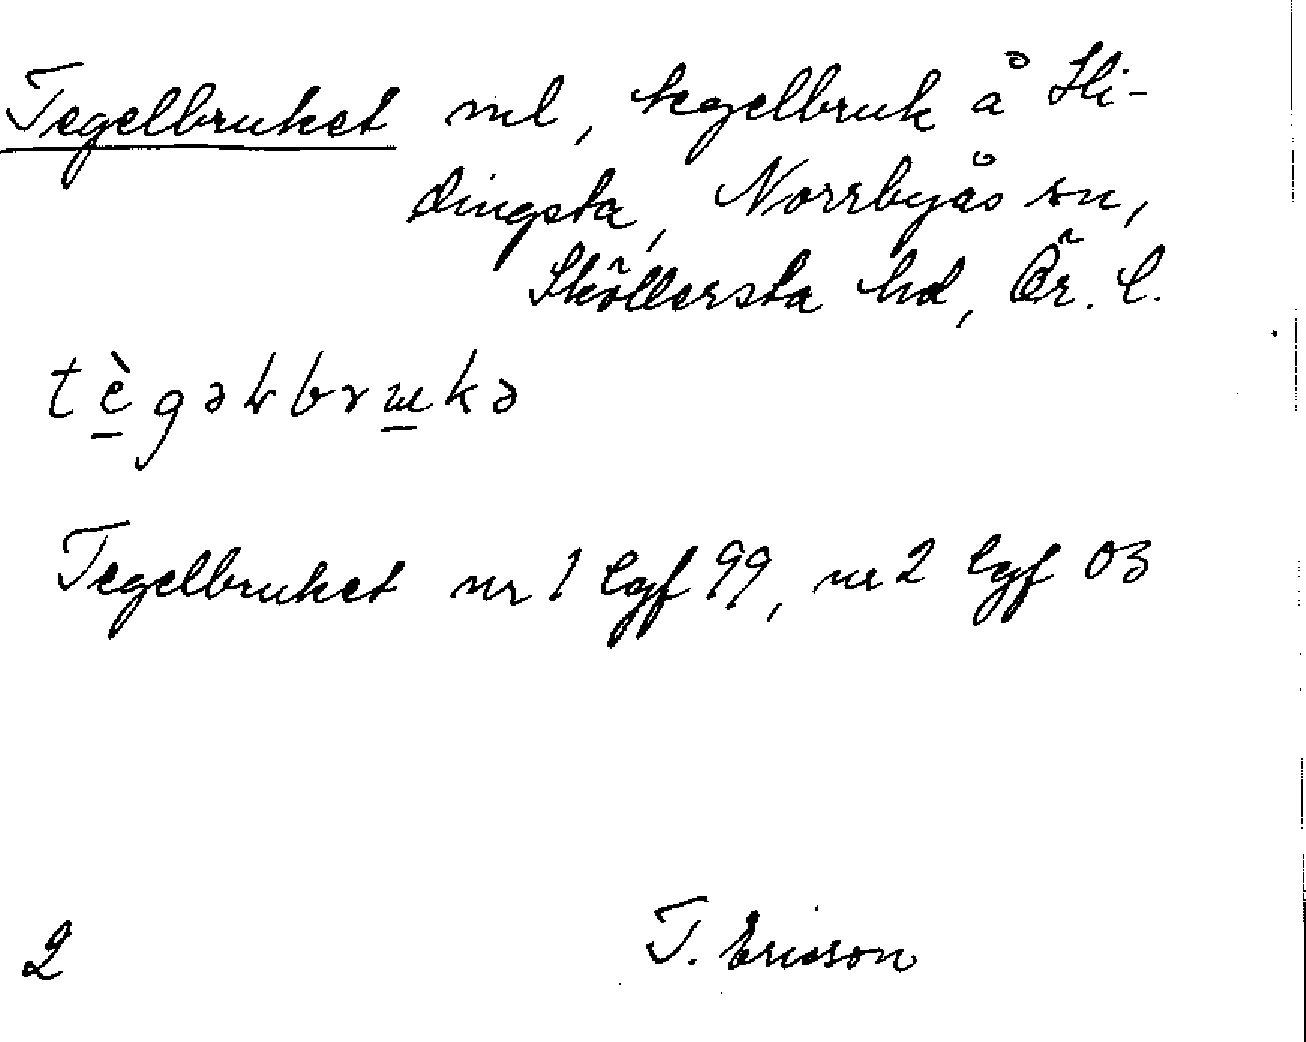 Tegelbruket nl, tegelbruk å Hi-
dingsta, Norrbyås sn,
Sköllersta hd, Ör. l.
tè̠gəɫbrɯ̠kə
Tegelbruket nr 1 lgf 99, nr 2 lgf 03
2 T. Ericson